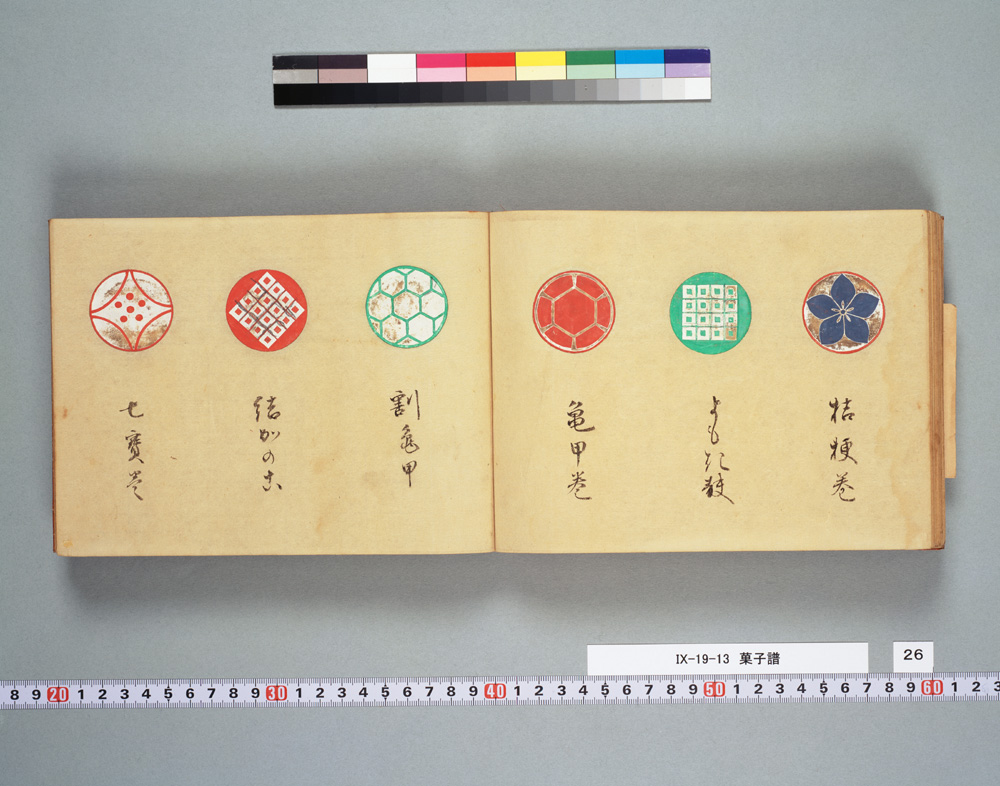 桔梗巻
亀甲巻
割亀甲
結かのこ
七寳巻
IX-19-13 菓子譜
26
8 9 20 1 2 3 4 5 6 7 8 9 30 1 2 3 4 5 6 7 8 9 40 1 2 3 4 5 6 7 8 9 50 1 2 3 4 5 6 7 8 9 60 1 2 3